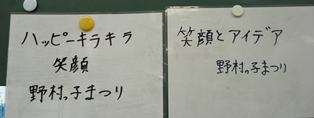 ハッピーキラキラ
笑顔
野村っ子まつり
笑顔とアイデア
野村っ子まつり